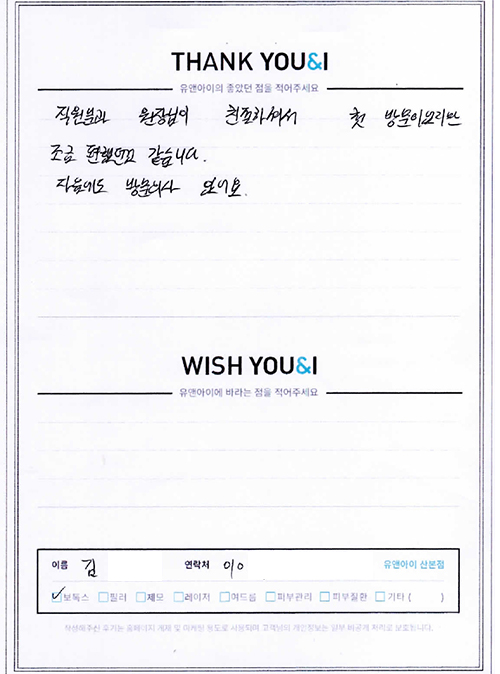 THANK YOU&I
유앤아이의 좋았던 점을 적어주세요
직원분과 원장님이 친절하셔서 첫 방문이였지만
조금 편했던것 같습니다.
다음에도 방문의사 있네요.
WISH YOU&I
유앤아이에 바라는 점을 적어주세요
이름 김 연락처 010 유앤아이 산본점
보톡스 필러 제모 레이저 여드름 피부관리 피부질환 기타 ( )
작성해주신 후기는 홈페이지 게재 및 마케팅 용도로 사용되며 고객님의 개인정보는 일부 비공개 처리로 보호됩니다.